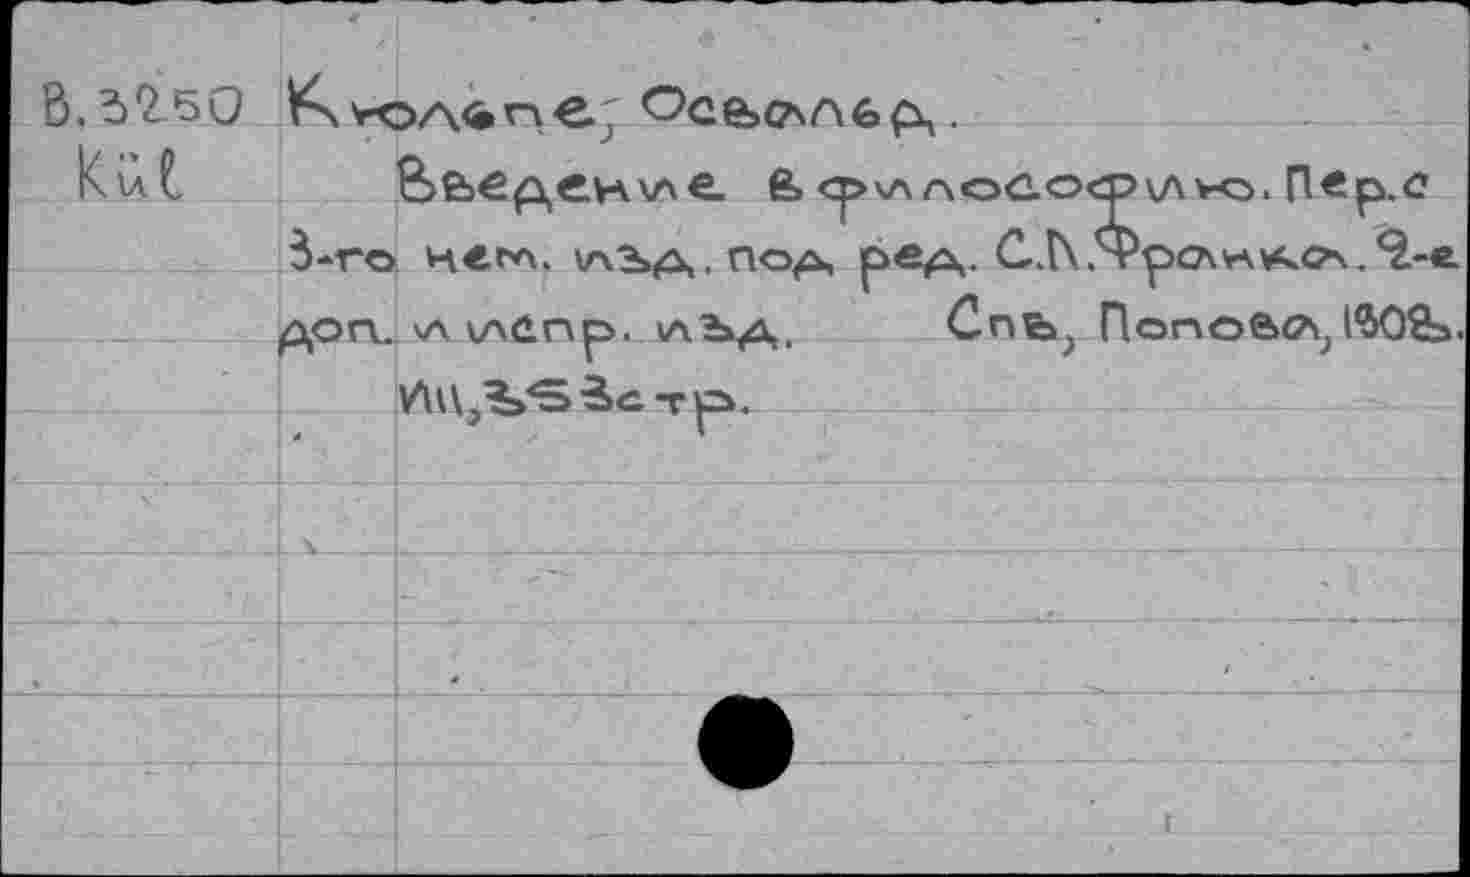 B.3250 Кюльпе, Освальд.
Kül Введение в философию. Пер.с
3-го нем. изд. под ред. С.Л.Франка. 2-е
доп. и испр. изд. Спб, Попова, 1908.
стр.